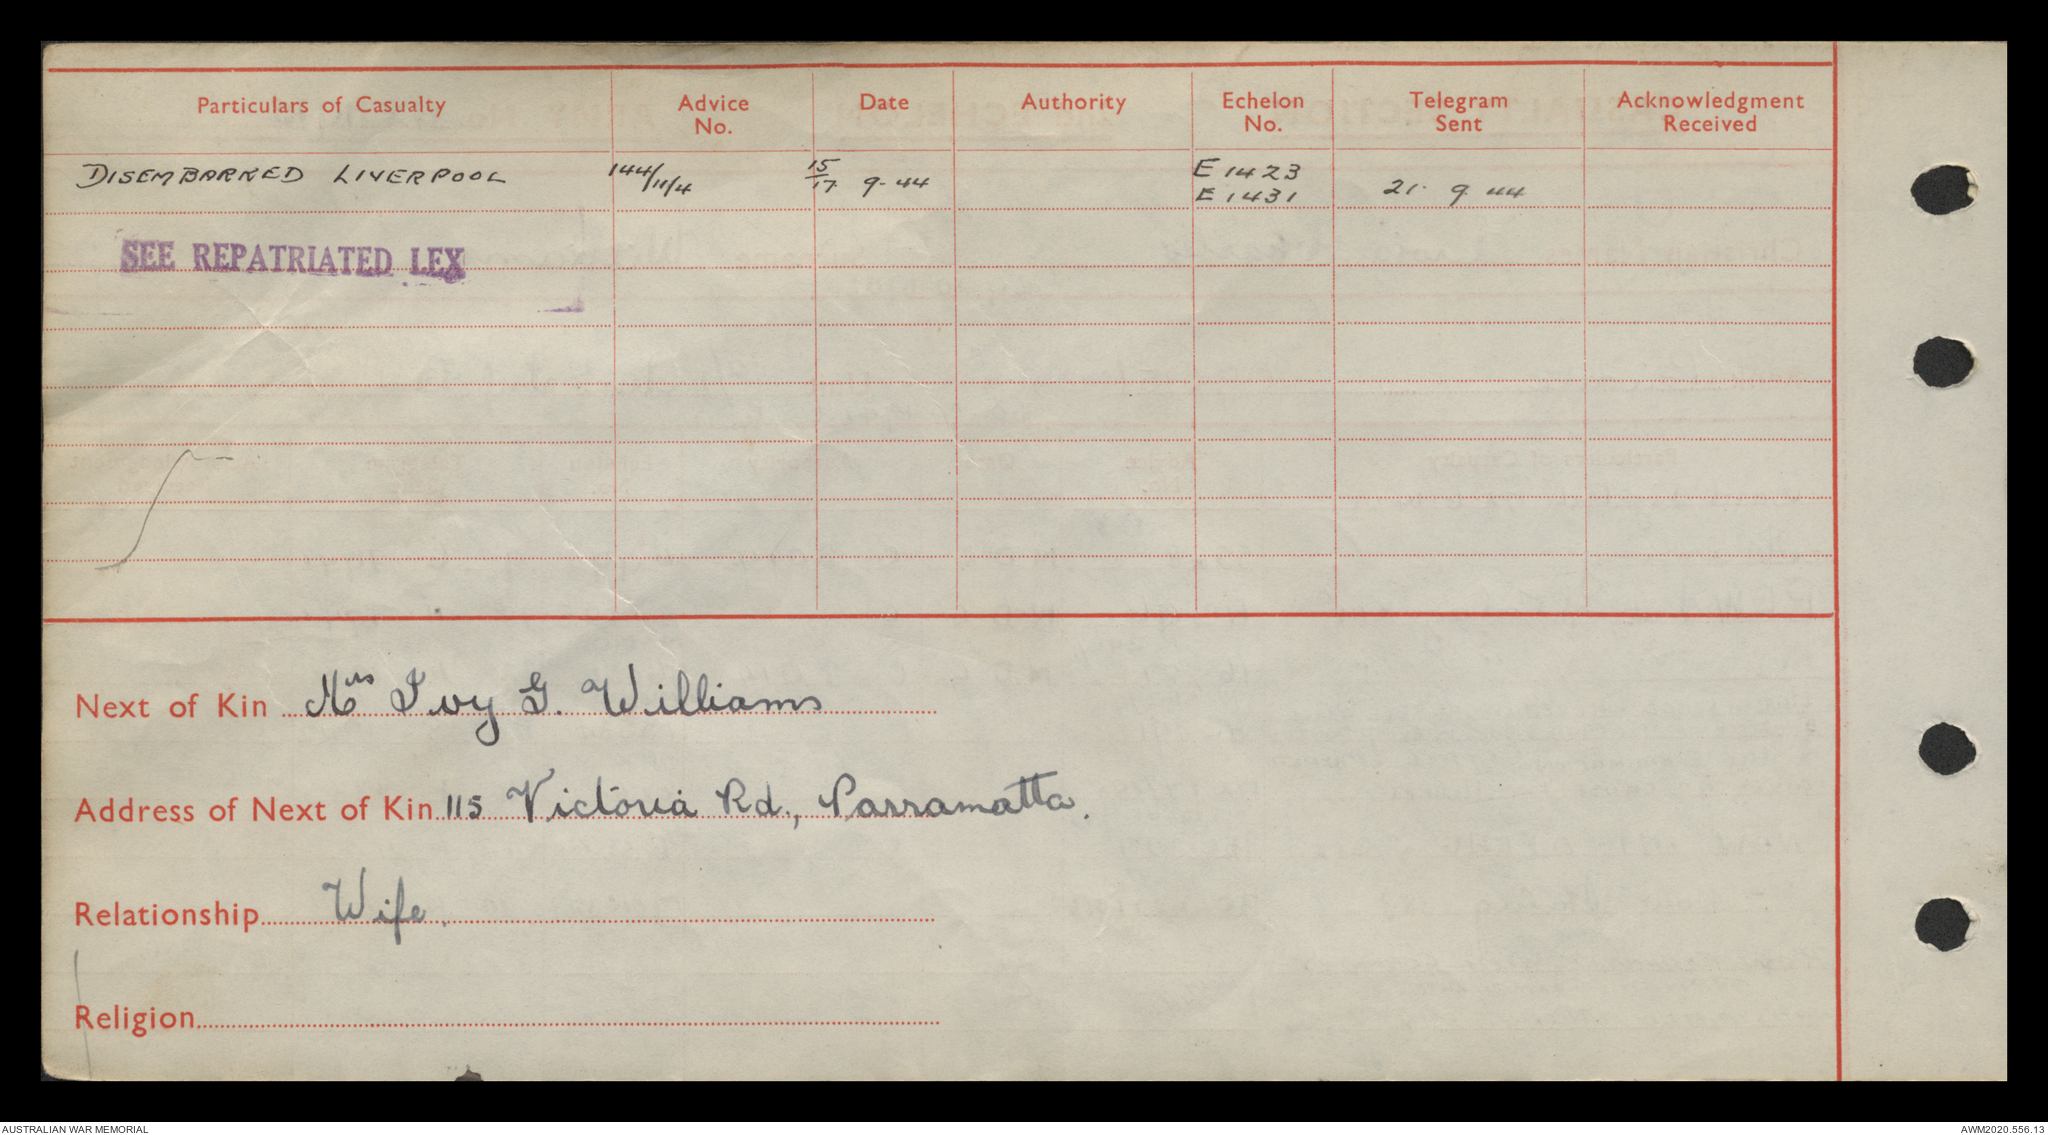 Particulars of Casualty Advice No. Date Authority Echelon No. Telegram Sent Acknowledgment Received
DISEMBARKED LIVERPOOL 144/11/4 15/17 9. 44 E 1423 21. 9 44
E 1431
SEE REPATRIATED LEX
Next of Kin Mrs Ivy G. Williams
Address of Next of Kin 115 Victoria Rd., Parramatta.
Relationship Wife.
Religion
AUSTRALIAN WAR MEMORIAL
AWM2020.556.13